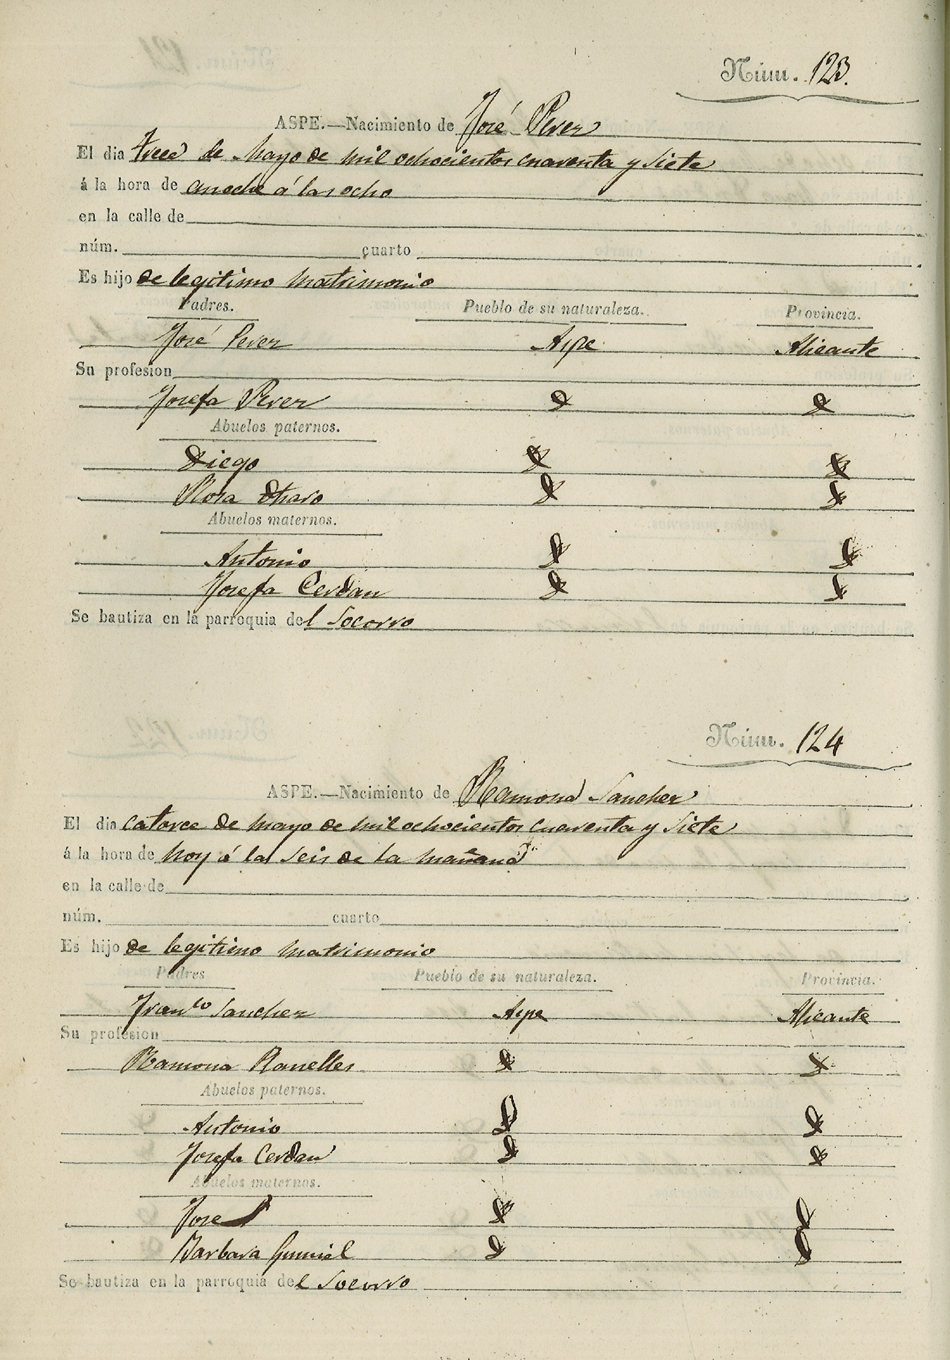 Núm. 123.
ASPE.—Nacimiento de José Perez
El dia trece de Mayo de mil ochocientos cuarenta y siete
á la hora de anoche á las ocho
en la calle de
núm. cuarto
Es hijo de legitimo matrimonio
Padres. Pueblo de su naturaleza. Provincia.
José Perez Aspe Alicante
Su profesion
Josefa Perez
Abuelos paternos.
Diego
Rosa
Abuelos maternos.
Antonio
Josefa Cerdan
Se bautiza en la parroquia del Socorro
Núm. 124
ASPE.—Nacimiento de Ramona Sanchez
El dia catorce de mayo de mil ochocientos cuarenta y siete
á la hora de hoy á la seis de la mañana
en la calle de
núm. cuarto
Es hijo de legitimo matrimonio
Padres Pueblo de su naturaleza. Provincia.
Franco Sanchez Aspe Alicante
Su profesion
Ramona
Abuelos paternos.
Antonio
Josefa Cerdan
Abuelos maternos.
Jose
Barbara
Se bautiza en la parroquia del Socorro